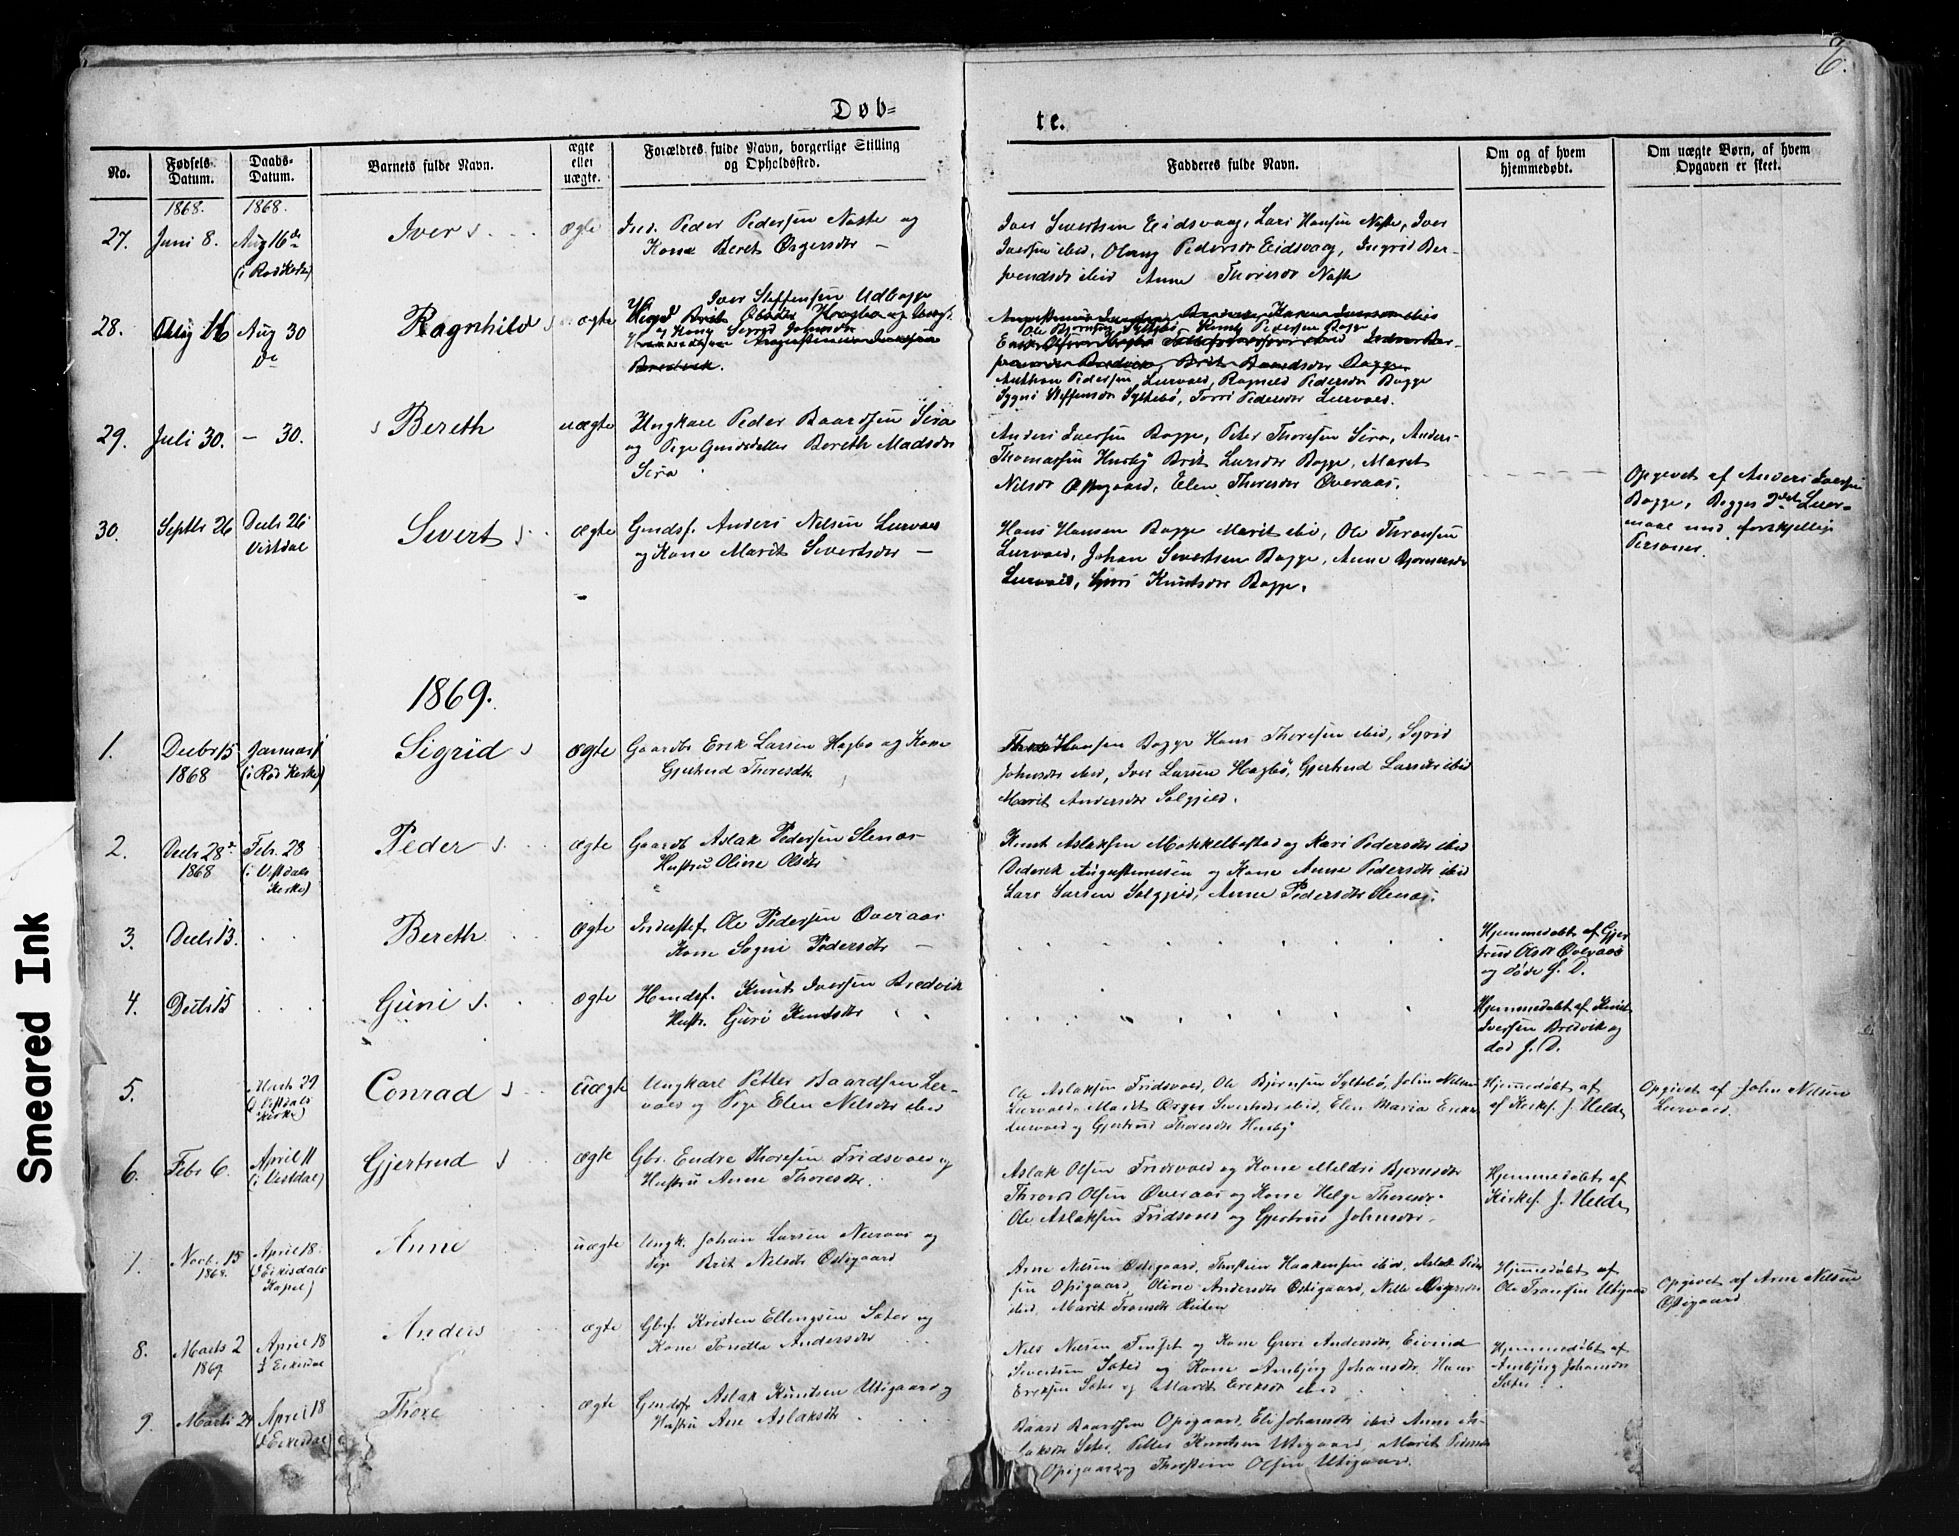 6.
Døb=
te.
No.
Fødsels-
Datum.
Daabs-
Datum.
Barnets fulde Navn.
ægte
eller
uægte.
Forældres fulde Navn, borgerlige Stilling
og Opholdssted.
Faddernes fulde Navn.
Om og af hvem
hjemmedøbt.
Om uægte Børn, af hvem
Opgaven er skeet.
1868. 1868.
27.
Juni 8.
Aug 16de
(i Rød Kirke)
Iver
ægte
Ind. Peder Pedersen Naste og
Kone Beret Asgersdr
Iver Sivertsen Eidsvaag, Lars Hansen Naste, Iver
Iversen ibid, Olaug Pedersdr Eidsvaag, Ingrid Ber-
Anne Thoresdr Naste
28.
16
Aug 30
Ragnhild
ægte
Iver Steffensen Udbogge
Ole Bjørnsen Syltebø Knut Pedersen Bogge
Anthon Pedersen Lervold, Ragnild Pedersdr Bogge
Steffensdr Syltebø, Pedersdr Lervold.
29.
Juli 30.
- 30.
Bereth
uægte
Ungkarl Peder Baardsen Sira
og Pige Bereth Madsdr
Sira
Anders Iversen Bogge, Peter Thoresen Sira, Anders
Thomassen Husby Brit Larsdr Bogge, Marit
Nilsdr, Elen Thoresdr Overaas.
Opgivet af Anders Iversen
Bogge, 2det Leier-
maal med forskjellige
Personer.
30.
Septbr 26
Decbr 26
Vistdal
Sivert
ægte
Gmdsf. Anders Nilsen Lervold
og Kone Marit Sivertsdr
Hans Hansen Bogge Marit ibid, Ole Thronsen
Lervold, Johan Sivertsen Bogge, Anne Bjørnsdr
Lervold, Knutsdr Bogge.
1869.
1.
Decbr 15
1868
Januar 1
(i Rød Kirke)
Sigrid
ægte
Gaardbr Erik Larsen Hagbø og Kone
Gjertrud Thoresdtr
Hansen Bogge Hans Thoresen ibid, Sigrid
Johnsdr ibid, Iver Larsen Hagbø, Gjertrud Larsdr ibid
Marit Andersdr Solgjeld.
2.
Decbr 28
1868
Febr. 28
(i Vistdals
Kirke)
Peder
ægte
Gaardb Aslak Pedersen Stenas
Hustru Oline Olsdr
Knut Aslaksen Mokkelbostad og Kari Pedersdr ibid
Diderik Augustinusen og Kone Anne Pedersdr ibid
Lars Larsen Solgjeld, Anne Pedersdr Stenas.
3.
Decbr 13.
Bereth
ægte
Inderstef. Ole Pedersen Overaas
Kone Pedersdr
Hjemmedøbt af Gjer
trud Olsdr Overaas
og døde J. D.
4.
Decbr 15
Guni
ægte
Knut Iversen Bredvik
Hustr. Guri Knutsdr
Hjemmedøbt af Knut
Iversen Bredvik og
død J. D.
5.
Marts 29
(i Vistdals
Kirke)
Conrad
uægte
Ungkarl Petter Baardsen Ler-
vold og Pige Elen Nilsdr ibid
Ole Aslaksen Fridsvold, Ole Bjørnsen Syltebø, John Nilsen
Lervold, Marit Sivertsdr ibid, Elen Maria
Lervold og Gjertrud Thoresdr Husby
Hjemmedøbt af
af Kirkes. J. Helde
Opgivet af John Nilsen
Lervold.
6.
Febr 6.
April 11
(i Vistdal)
Gjertrud
ægte
Gbr. Endre Thoresen Fridsvold og
Hustru Anne Thoresdr.
Aslak Olsen Fridsvold og Kone Mildri Bjørnsdr
Thrond Olsen Overaas og Kone Helge Thoresdr
Ole Aslaksen Fridsvold og Gjertrud Johnsdr.
Hjemmedøbt af
Kirkes. J. Helde
7.
Novb. 15
1868.
April 18.
(i Eikisdals
Kapel)
Anne
uægte
Ungk. Johan Larsen
og
Pige Brit Nilsdr Opigaard
Arne Nilsen Opigaard, Thorstein Haakensen ibid, Aslak
Opigaard, Oline Andersdr Opigaard,
ibid, Marit Tronsdr Reiten
Hjemmedøbt af
Ole Tronsen Utigaard
Opgivet af Arne Nilsen
Opigaard
8.
Marts 2
1869
April 18
i Eikisdal
Anders
ægte
Gbrf. Kristen Ellingsen Sæter og
Kone Andersdr
Nils Nilsen Finset og Kone Guri Andersdr, Eivind
Sivertsen Sæter og Kone Anbjørg Johansdr, Hans
Eriksen Sæter og Marit Eriksdr ibid
Hjemmedøbt af
Anbjørg Johansdr
Sæter
9.
Marts 24
April 18
(i Eikisdal)
Thore
ægte
Aslak Knutsen Utigaard og
Hustru Ane Aslaksdr
Baard Baardsen Opigaard, Eli Johansdr ibid Anne As-
laksdr Sæter, Petter Knutsen Utigaard, Marit
Opigaard og Thorstein Olsen Utigaard.
Smeared Ink